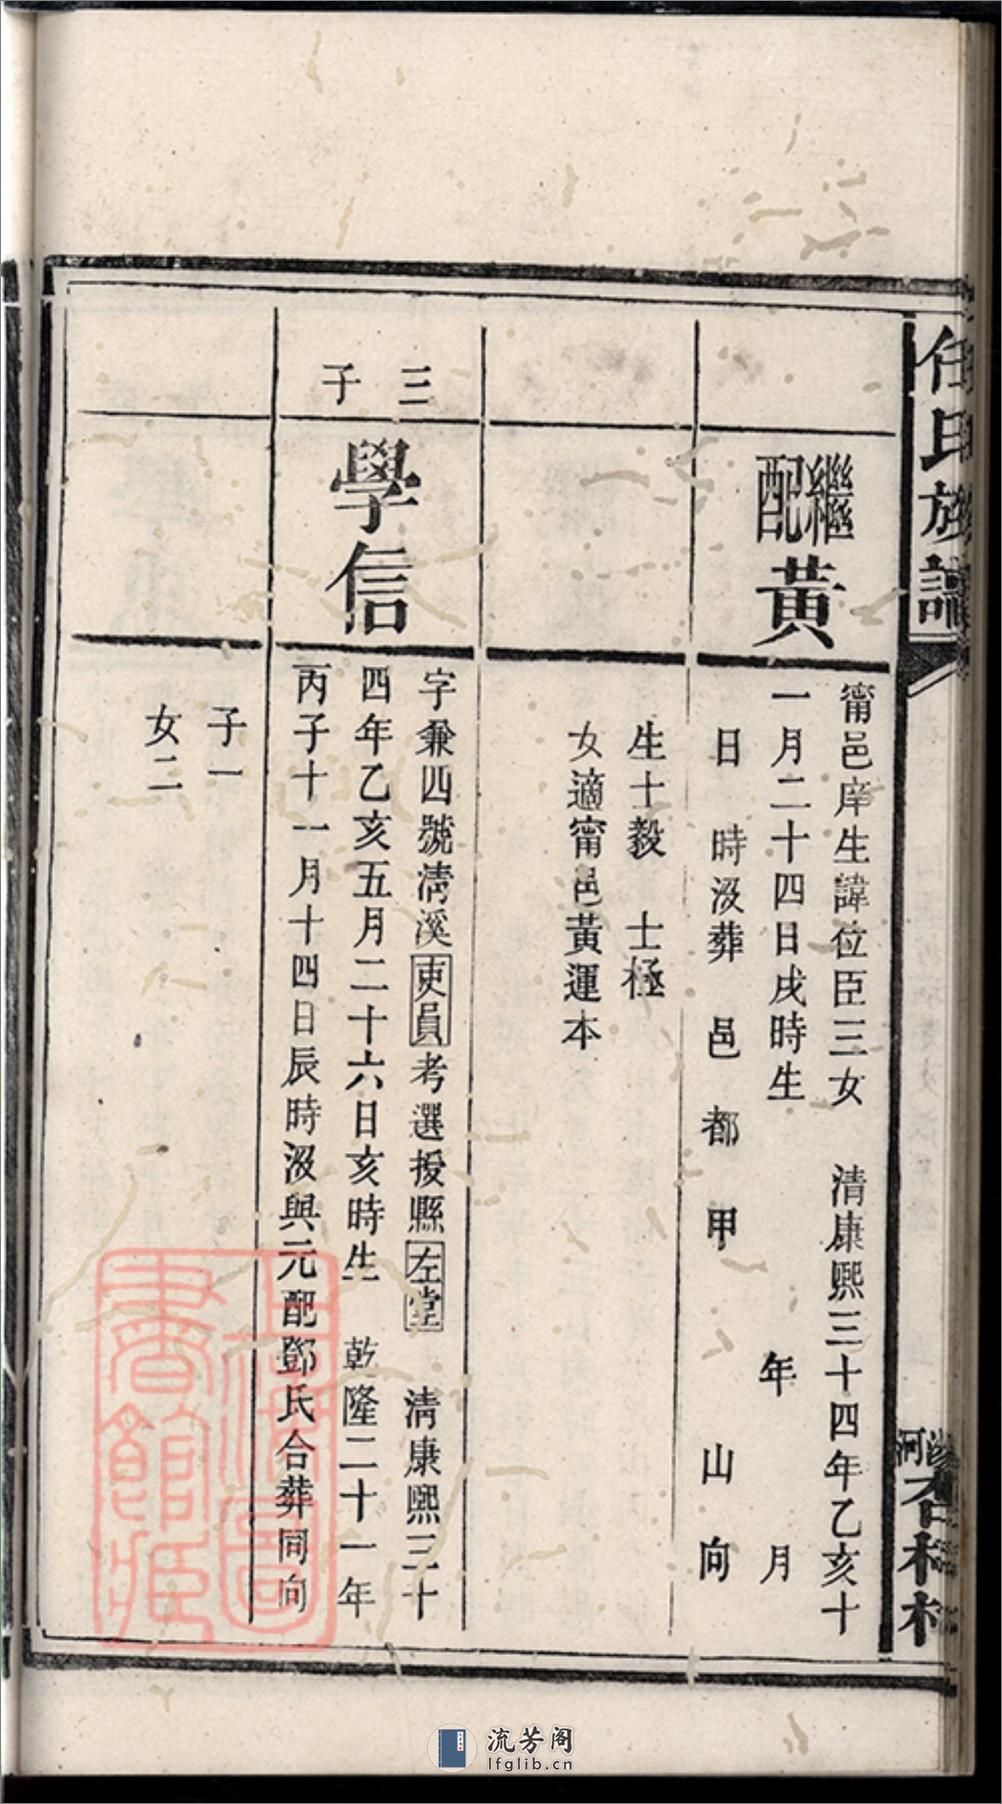 任氏族譜
繼配黃
甯邑庠生諱位臣三女　清康熙三十四年乙亥十
一月二十四日戌時生　年　月
日　時沒葬　邑　都　甲　山　向
生士毅　士極
女適甯邑黃運本
三子
學信
字兼四號清溪吏員考選授縣左堂　清康熙三十
四年乙亥五月二十六日亥時生　乾隆二十一年
丙子十一月十四日辰時沒與元配鄧氏合葬同向
子一
女二
上海圖書館藏
流芳阁
lfglib.cn